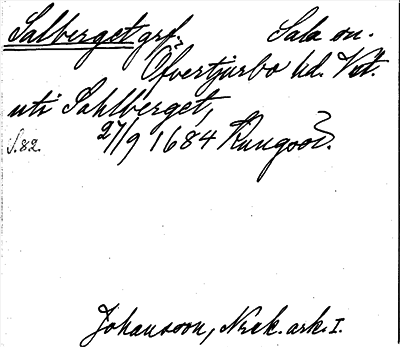 Salberget grf. Sala sn.
Öfvertjurbo hd. Vstl.
uti Sahlberget,
S.82. 27/9 1684 Kungsör.
Johansson, Norek. ark. I.